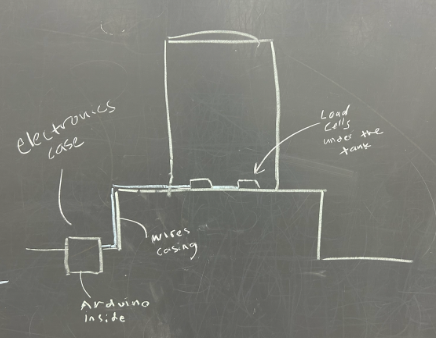 electronics
case
Load
Cells
under the
tank
wires
casing
Arduino
inside